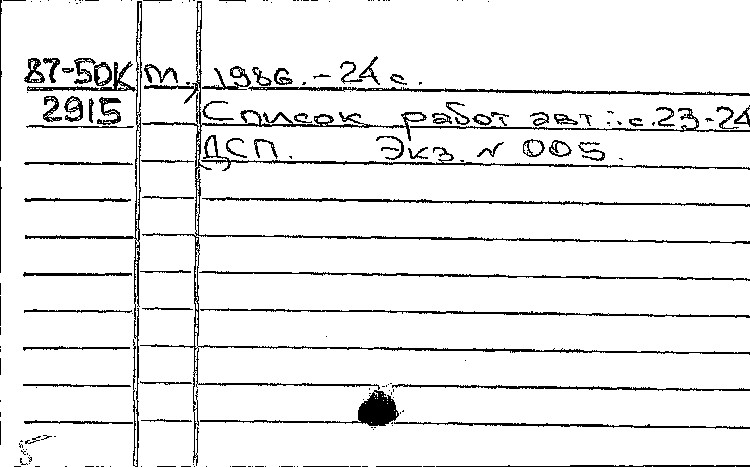 87-50К М., 1986. - 24 с.
2915 Список работ авт.: с. 23-24
ДСП. Экз. N 005.
5